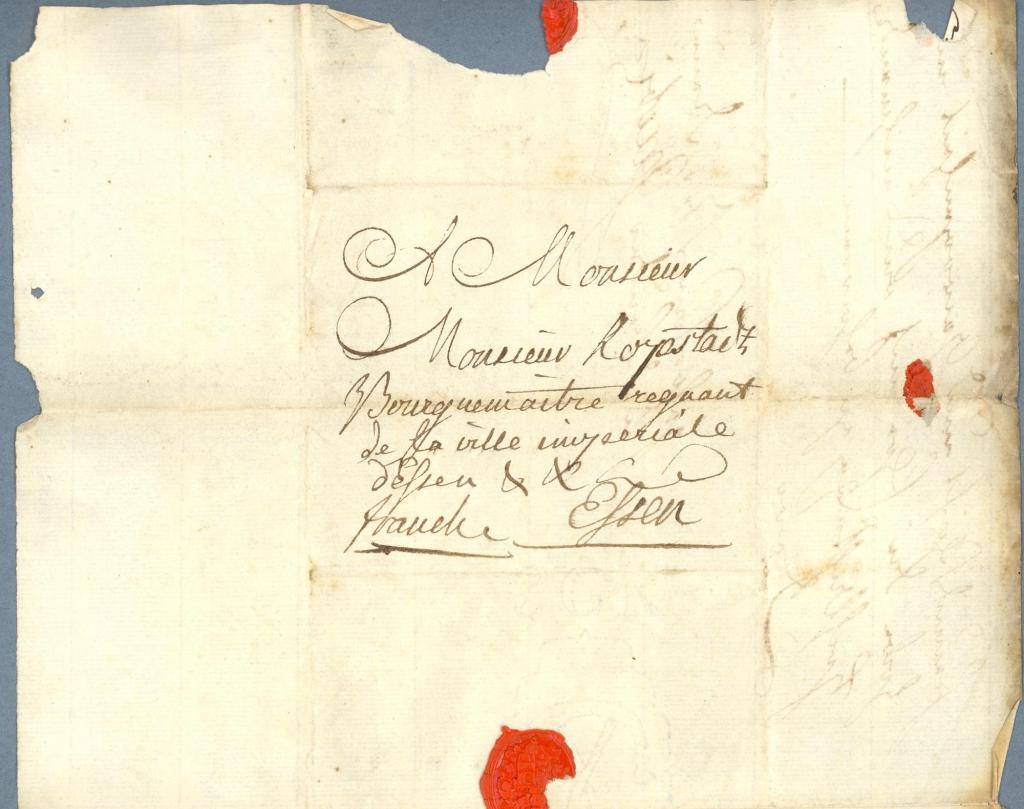 A Monsieur
Monsieur Kopstadt
Bourguemaitre regnant
de la ville imperiale
d'Essen & &
franche Essen